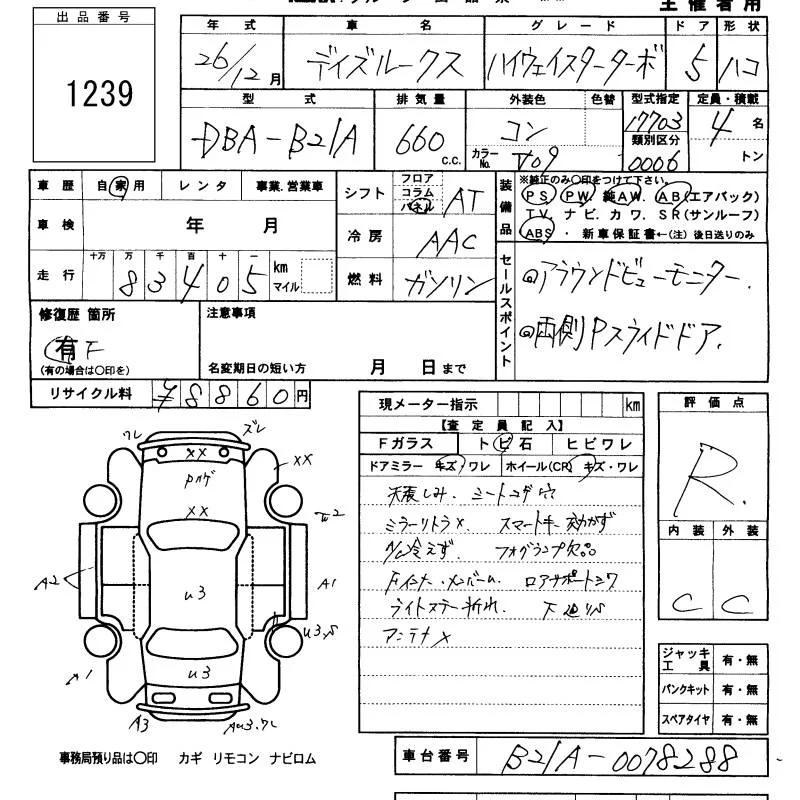 主催者用
出品番号
1239
年式 車名 グレード ドア 形状
26/12月 デイズルークス ハイウェイスターターボ 5 ハコ
型式 排気量 外装色 色替 型式指定 定員・積載
DBA-B21A 660 C.C. コン カラーNo. V09 17703 4 名
類別区分
0006 トン
車歴 自家用 レンタ 事業.営業車
車検 年 月
走行 十万 万 千 百 十 一 km マイル
83405
シフト フロア コラム パネル AT
冷房 AAC
燃料 ガソリン
装備品 ※純正のみ〇印をつけて下さい。
PS. PW. 純AW. AB(エアバック)
TV. ナビ. カワ. SR(サンルーフ)
ABS ・ 新車保証書←(注)後日送りのみ
セールスポイント
◎アラウンドビューモニター.
◎両側Pスライドドア.
修復歴 箇所
有F
(有の場合は〇印を)
注意事項
名変期日の短い方 月 日まで
リサイクル料 ¥8860円
現メーター指示 km
【査定員記入】
Fガラス トビ石 ヒビワレ
ドアミラー キズ/ワレ ホイール(CR) キズ・ワレ
天張しみ. シートコゲ穴
ミラーリトラ× スマートキー効かず
A/C冷えず. フォグランプ欠品
Fインナー.メンバーム. ロアサポートシワ
ライトステー折れ. 下廻り
アンテナ×
評価点
R.
内装 外装
C C
ジャッキ工具 有・無
パンクキット 有・無
スペアタイヤ 有・無
ワレ ズレ
××
××
××
A2
A1
u3
u3
u3.S
A1
A3
事務局預り品は〇印 カギ リモコン ナビロム
車台番号 B21A-0078288